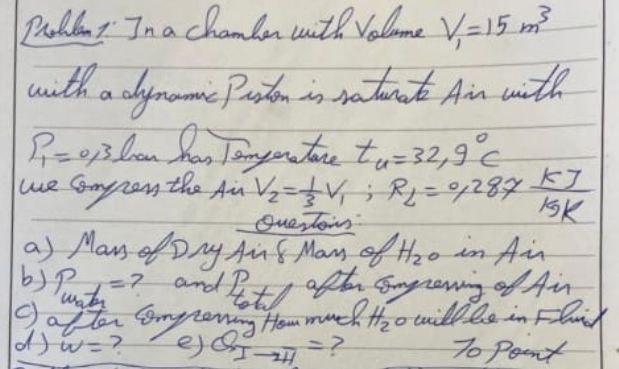 Problem 1: In a chamber with Volume V₁=15 m³
with a dynamic Piston is saturate Air with
P₁=0,3 bar has Temperature tu=32,9°C
we Compress the Air V₂=1/3 V₁ ; RL=0,287 KJ/kgK
Questions:
a) Mass of Dry Air & Mass of H₂O in Air
b) P water =? and P total after Compressing of Air
c) after Compressing How much H₂O will be in Fluid
d) w=? e) Q I→II =? 70 Point